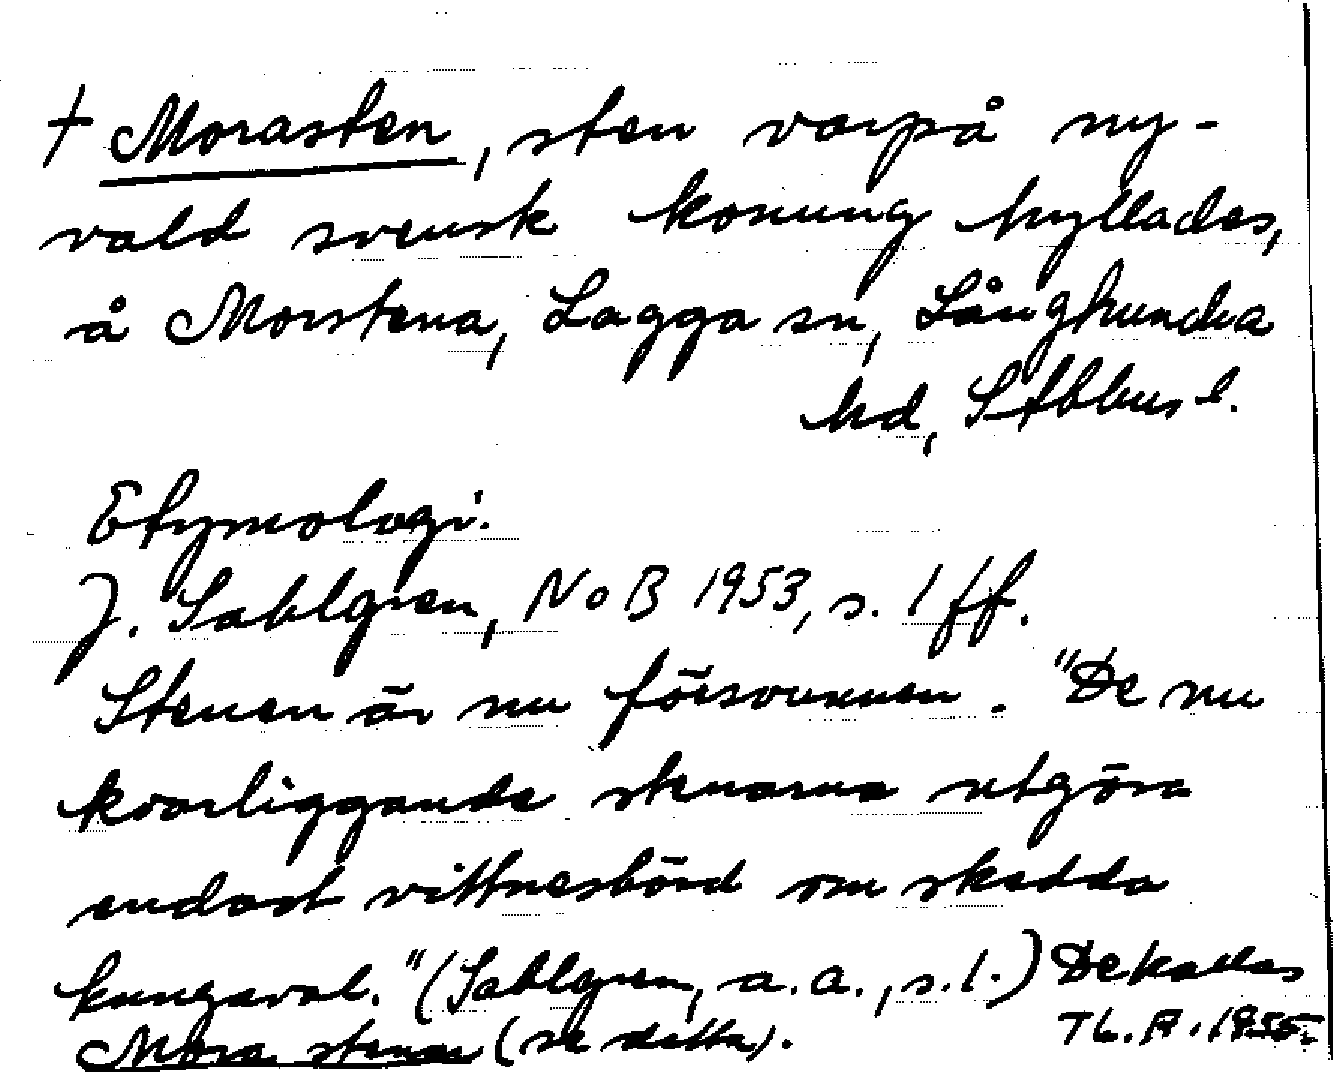 † Morasten, sten varpå ny-
vald svensk konung hyllades,
å Morstena, Lagga sn, Långhundra
hd, Sthlms l.
Etymologi.
J. Sahlgren, NoB 1953, s. 1 ff.
Stenen är nu försvunnen. "De nu
kvarliggande stenarna utgöra
endast vittnesbörd om skedda
kungaval." (Sahlgren, a.a., s.1.) De kallas
Mora stenar (se detta).
Th. A. 1955.